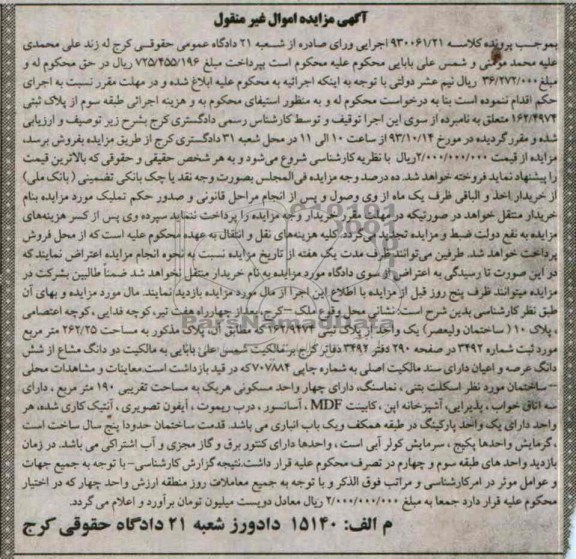 آگهی مزایده اموال غیر منقول
بموجب پرونده کلاسه ۹۳۰۰۶۱/۲۱ اجرایی ورای صادره از شعبه ۲۱ دادگاه عمومی حقوقی کرج له زند علی محمدی
علیه محمد مرادی و شمس علی بابایی محکوم علیه محکوم است بپرداخت مبلغ ۷۲۵/۴۵۵/۱۹۶ ریال در حق محکوم له و
مبلغ ۳۶/۲۷۲/۰۰۰ ریال نیم عشر دولتی با توجه به اینکه اجرائیه به محکوم علیه ابلاغ شده و در مهلت مقرر نسبت به اجرای
حکم اقدام ننموده است بنا به درخواست محکوم له و به منظور استیفای محکوم به و هزینه اجرائی طبقه سوم از پلاک ثبتی
۱۶۲/۴۹۷۴ متعلق به نامبرده از سوی این اجرا توقیف و توسط کارشناس رسمی دادگستری کرج بشرح زیر توصیف و ارزیابی
شده و مقرر گردیده در مورخ ۹۳/۱۰/۱۴ از ساعت ۱۰ الی ۱۱ در محل شعبه ۳۱ دادگستری کرج از طریق مزایده بفروش برسد،
مزایده از قیمت ۲/۰۰۰/۰۰۰/۰۰۰ ریال با نظریه کارشناسی شروع می‌شود و به هر شخص حقیقی و حقوقی که بالاترین قیمت
را پیشنهاد نماید فروخته خواهد شد. ده درصد وجه مزایده فی‌المجلس بصورت وجه نقد یا چک بانکی تضمینی (بانک ملی)
از خریدار اخذ و الباقی ظرف یک ماه از وی وصول و پس از انجام مراحل قانونی و صدور حکم تملیک مورد مزایده بنام
خریدار منتقل خواهد در صورتیکه در مهلت مقرر خریدار وجه مزایده را پرداخت ننماید سپرده وی پس از کسر هزینه‌های
مزایده به نفع دولت ضبط و مزایده تجدید می‌گردد. کلیه هزینه‌های نقل و انتقال به عهده محکوم علیه است که از محل فروش
پرداخت خواهد شد. طرفین می‌توانند ظرف مدت یک هفته از تاریخ مزایده نسبت به نحوه انجام مزایده اعتراض نمایند که
در این صورت تا رسیدگی به اعتراض از سوی دادگاه مورد مزایده به نام خریدار منتقل نخواهد شد ضمنا طالبین بشرکت در
مزایده میتوانند ظرف پنج روز قبل از مزایده با اطلاع این اجرا از مال مورد مزایده بازدید نمایند. مال مورد مزایده و بهای آن
طبق نظر کارشناسی بدین شرح است: نشانی محل وقوع ملک – کرج، بلوار چهارراه هفت تیر، کوچه فدایی، کوچه اعتصامی
، پلاک ۱۰ (ساختمان ولیعصر) یک واحد آپارتمان مذکور به مساحت ۲۶۲/۲۵ متر مربع
مورد ثبت شماره ۳۴۹۲ در صفحه ۲۹۰ دفتر ۳۴۹۲ دفاتر کرج بر مالکیت شمس علی بابایی به مالکیت دو دانگ مشاع از شش
دانگ عرصه و اعیان دارای سند مالکیت اصلی به شماره چاپی ۷۰۷۸۸۴ که در قید بازداشت است. معاینات و مشاهدات محلی
– ساختمان مورد نظر اسکلت بتنی، نماسنگ، دارای چهار واحد مسکونی هریک به مساحت تقریبی ۱۹۰ متر مربع، دارای
سه اتاق خواب، پذیرایی، آشپزخانه اپن، کابینت MDF، آسانسور، درب ریموت، آیفون تصویری، آنتیک کاری شده، هر
واحد دارای یک واحد پارکینگ در طبقه همکف ویک باب انباری می باشد. قدمت ساختمان حدودا پنج سال ساخت است
، گرمایش واحدها پکیج، سرمایش کولر آبی است، واحدها دارای کنتور برق و گاز مجزی و آب اشتراکی می باشد. در زمان
بازدید واحد های طبقه سوم و چهارم در تصرف محکوم علیه قرار داشت. نتیجه گزارش کارشناسی- با توجه به جمیع جهات
و عوامل موثر در امرکارشناسی و مراتب فوق الذکر و با توجه به جمیع معاملات روز منطقه ارزش واحد چهار که در اختیار
محکوم علیه قرار دارد جمعا به مبلغ ۲/۰۰۰/۰۰۰/۰۰۰ ریال معادل دویست میلیون تومان برآورد و اعلام می گردد.
م الف: ۱۵۱۴۰ دادورز شعبه ۲۱ دادگاه حقوقی کرج